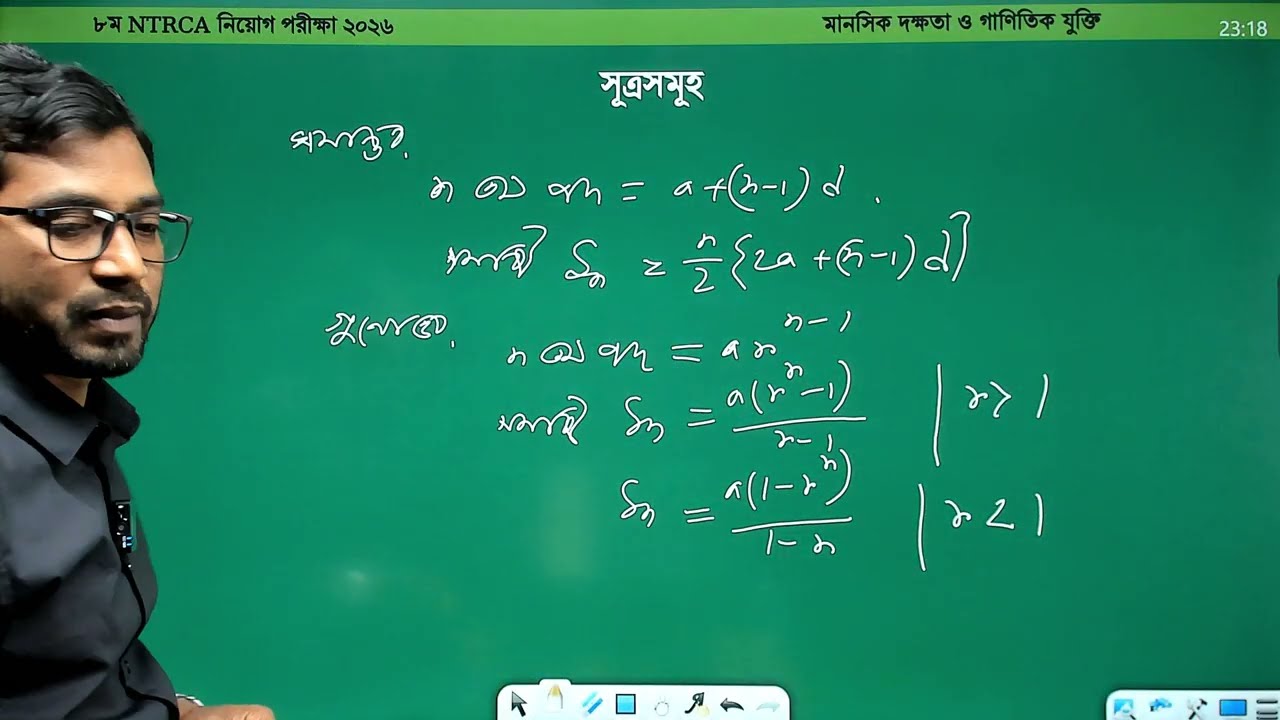 ৮ম NTRCA নিয়োগ পরীক্ষা ২০২৬
মানসিক দক্ষতা ও গাণিতিক যুক্তি
23:18
সূত্রসমূহ
সমান্তর.
n তম পদ = a+(n-1) d .
সমষ্টি Sn = n/2 {2a +(n-1) d}
গুণোত্তর.
n তম পদ = a r^(n-1)
সমষ্টি Sn = a(r^n-1)/(r-1) | r > 1
Sn = a(1-r^n)/(1-r) | r < 1